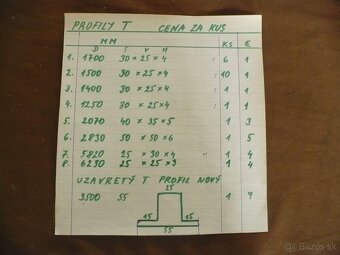 PROFILY T CENA ZA KUS
MM KS €
D Š V H
1. 1700 30 × 25 × 4 6 1
2. 1500 30 × 25 × 4 10 1
3. 1400 30 × 25 × 4 1 1
4. 1250 30 × 25 × 4 1 1
5. 2070 40 × 35 × 5 1 3
6. 2830 50 × 50 × 6 1 5
7. 5820 25 × 30 × 4 1 4
8. 6230 25 × 25 × 3 1 4
UZAVRETÝ T PROFIL NOVÝ
25
3500 55 1 9
15 15
55
Bazos.sk